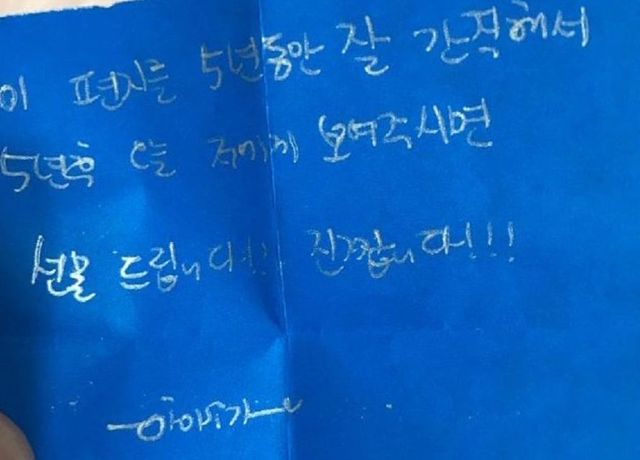 이 편지를 5년동안 잘 간직해서
5년후 오늘 저에게 보여주시면
선물 드립니다!! 진짭니다!!!